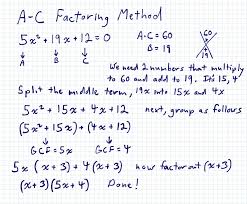 A-C Factoring Method
5x² + 19x + 12 = 0
A B C
A·C = 60
B = 19
60
19
We need 2 numbers that multiply
to 60 and add to 19. It's 15, 4
Split the middle term, 19x into 15x and 4x
5x² + 15x + 4x + 12 next, group as follows
(5x² + 15x) + (4x + 12)
GCF = 5x GCF = 4
5x (x+3) + 4(x+3) now factor out (x+3)
(x+3)(5x+4) Done!